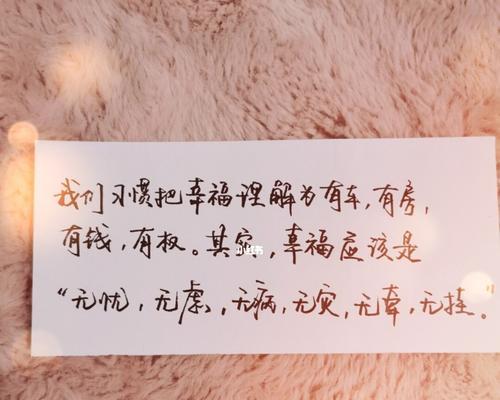 我们习惯把幸福理解为有车，有房，
有钱，有权。其实，幸福应该是
小红书
“无忧，无虑，无病，无灾，无牵，无挂。”